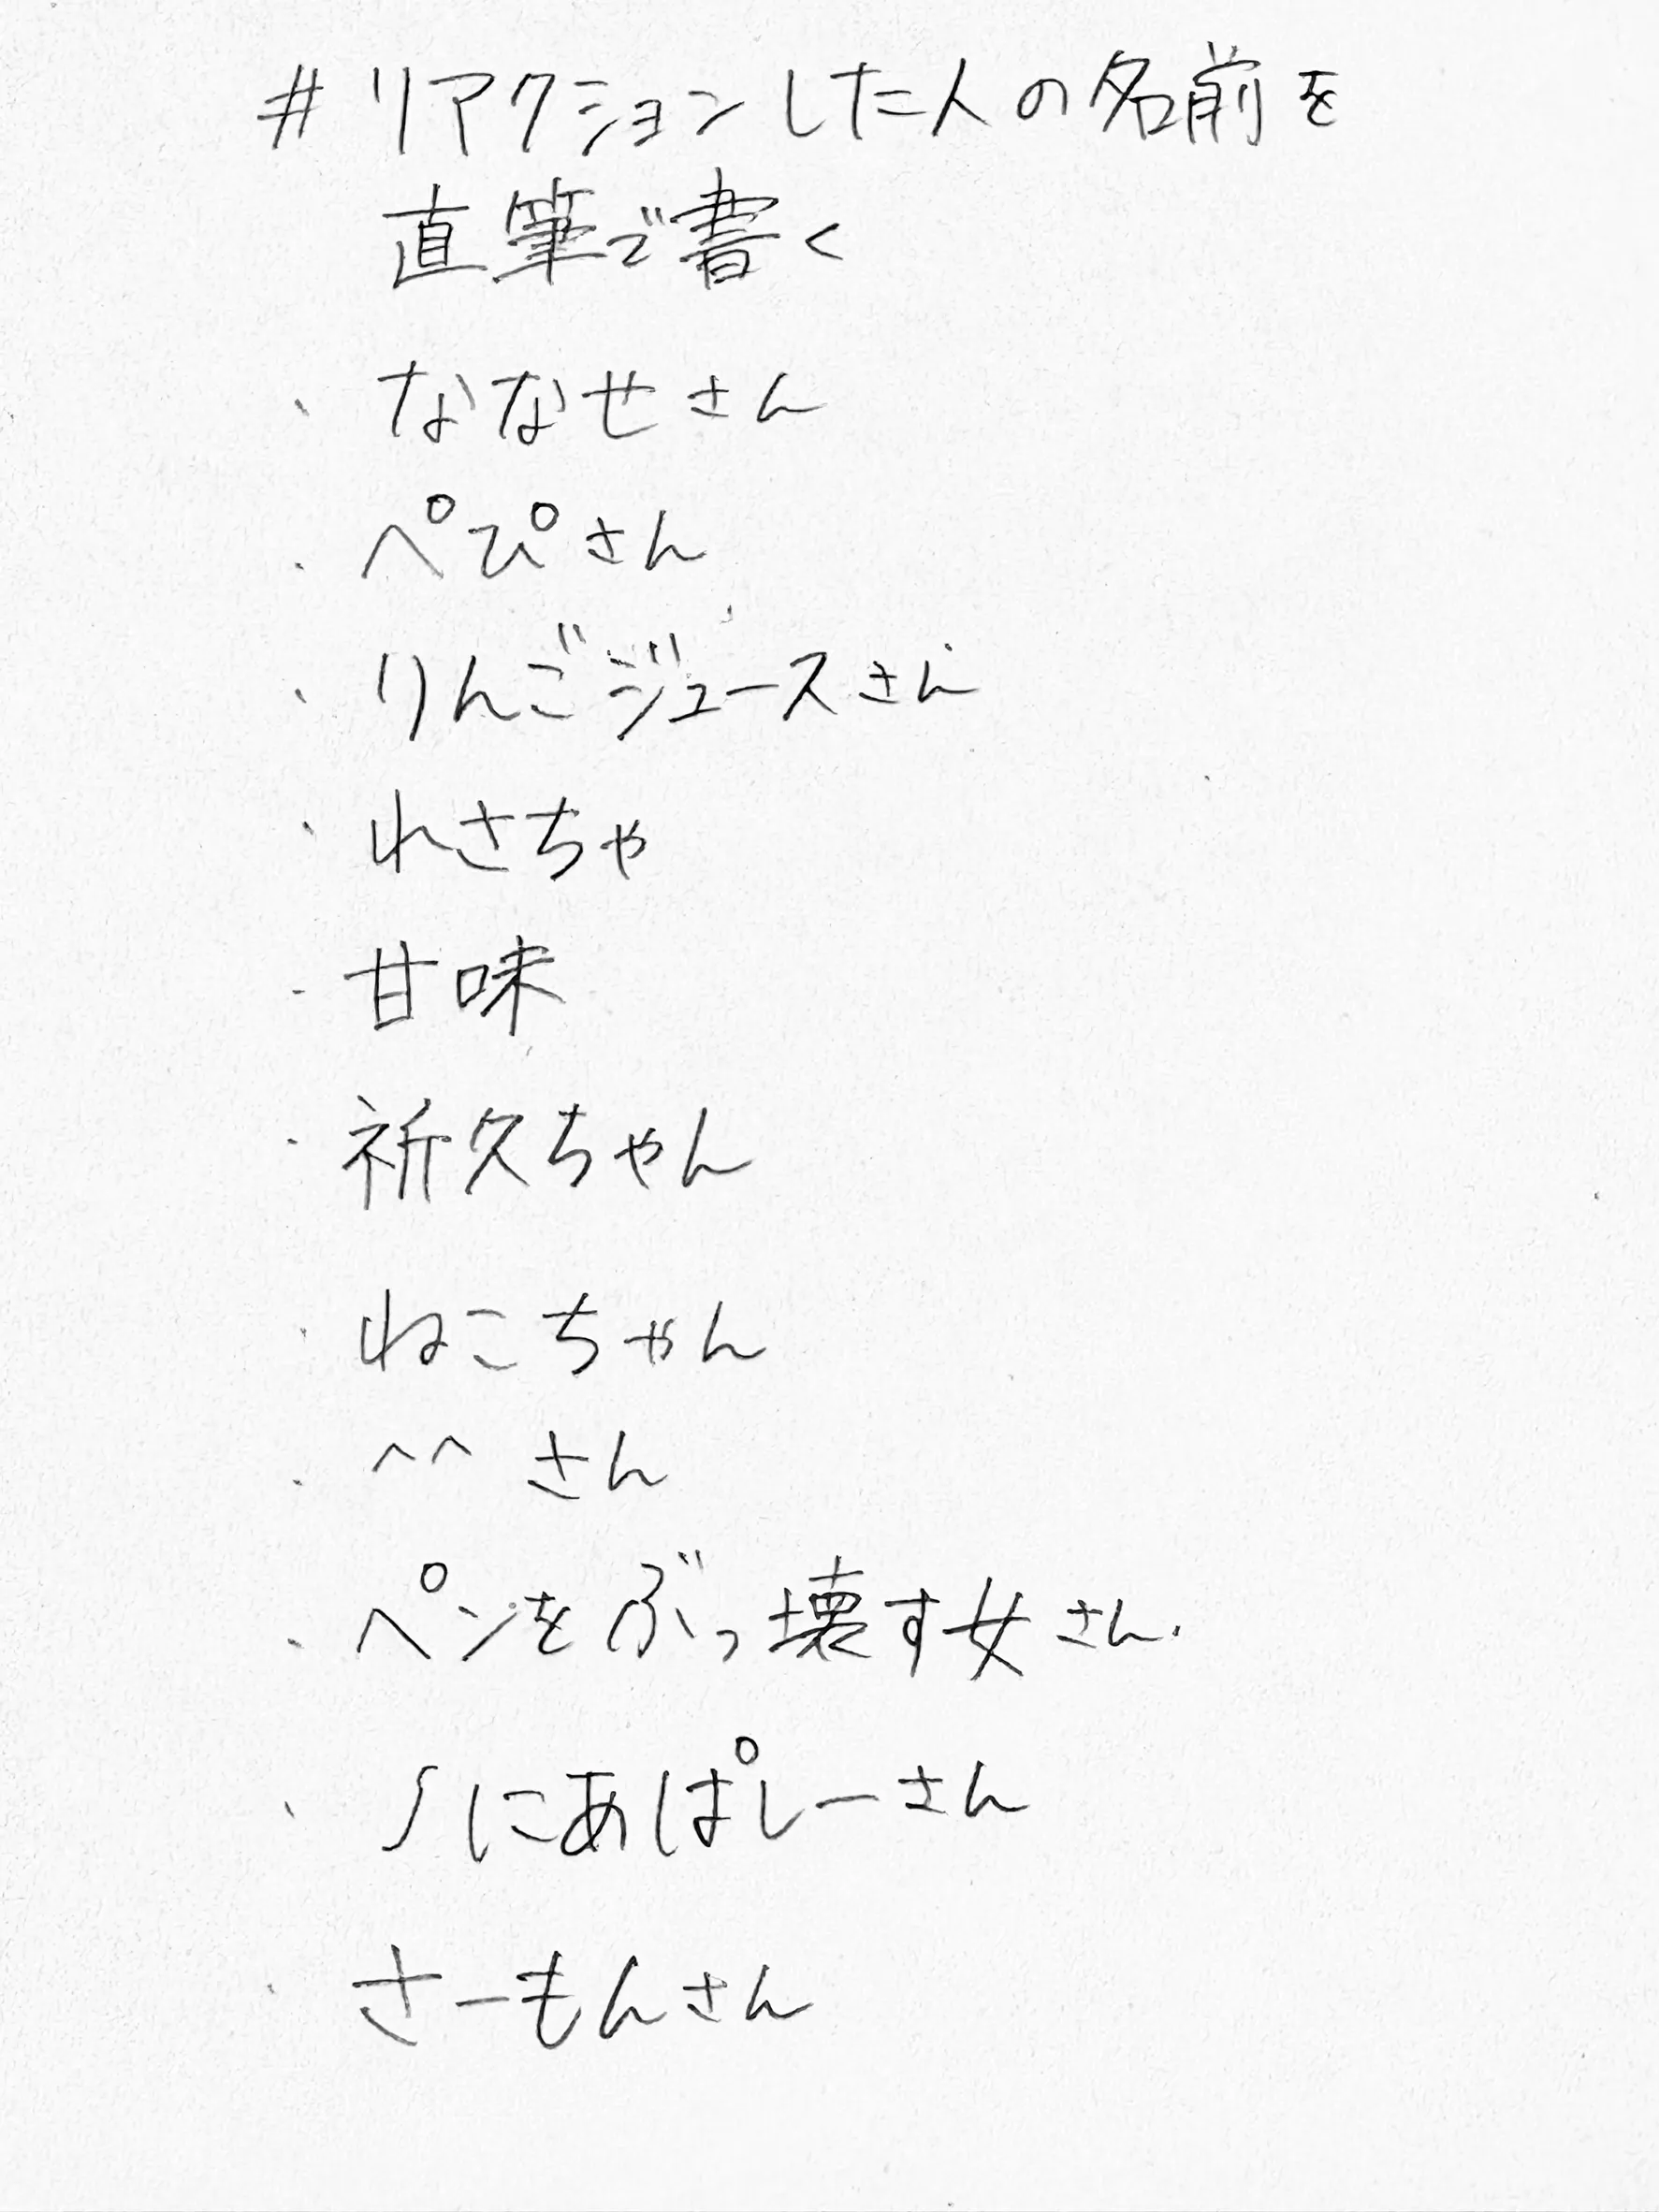 #リアクションした人の名前を
直筆で書く
・ななせさん
・ぺぴさん
・りんごジュースさん
・れさちゃ
・甘味
・祈久ちゃん
・ねこちゃん
・^^ さん
・ペンをぶっ壊す女さん
・∫にあぱしーさん
・さーもんさん